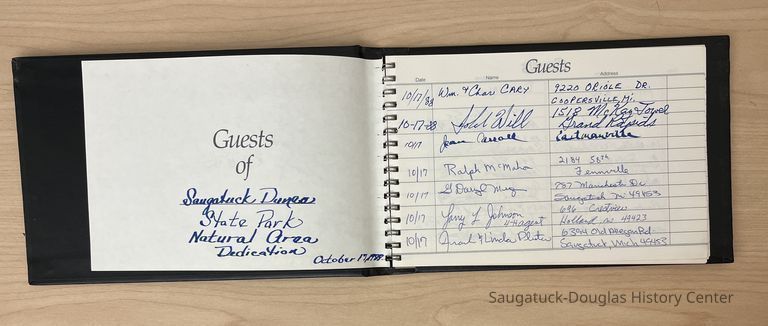 Guests
of
Saugatuck Dunes
State Park
Natural Area
Dedication
October 17, 1988
Guests
Date Name Address
10/17/88 Wm. & Char CARY 9220 ORIOLE DR.
COOPERSVILLE, Mi.
10-17-88 Will 1518
Grand Rapids
10/17 Jean Eastmanville
10/17 Ralph McMaha 2184 58th
Fennville
10/17 787 Manchester Dr.
Saugatuck Mi 49453
10/17 Larry L Johnson 696
4-H agent Holland Mi 49423
10/17 & Linda 6394 Old Allegan Rd.
Saugatuck, Mich 49453
Saugatuck-Douglas History Center